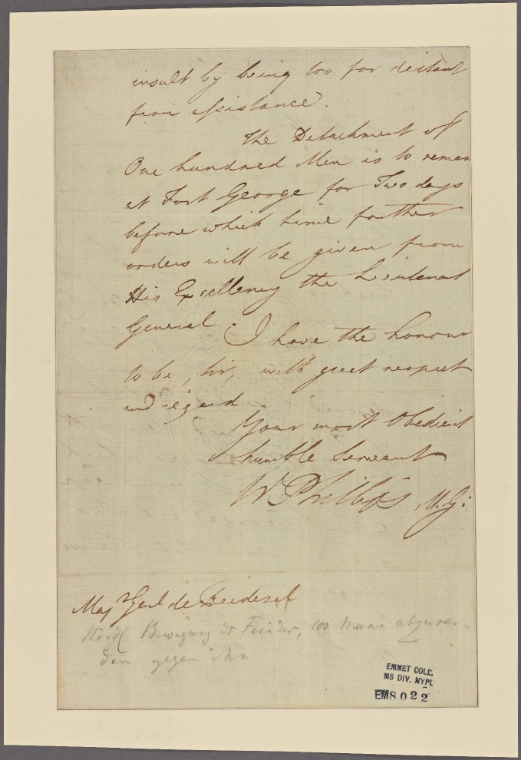 insult by being too far distant
from assistance.
The Detachment of
One hundred Men is to remain
at Fort George for Two days
before which time further
orders will be given from
His Excellency the Lieutenant
General. I have the honour
to be, Sir, with great respect
and regard
Your most Obedient
humble Servant
W Phillips M.G:
Maj Genl de Reidesel
Bewegung der Feinde, 100 Mann
den gegen ihn
EMMET COLL.
MS DIV. NYPL
EM8022